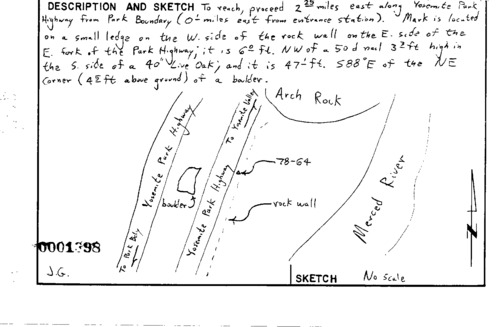 DESCRIPTION AND SKETCH To reach, proceed 2 miles east along Yosemite Park
Highway from Park Boundary (0 miles east from entrance station). Mark is located
on a small ledge on the W. side of the rock wall on the E. side of the
E. fork of the Park Highway; it is 6 ft. NW of a 50d nail 3 ft high in
the S. side of a 40" Live Oak; and it is 47 ft. S88°E of the NE
corner (4 ft above ground) of a boulder.
Arch Rock
Yosemite Park Highway
To Yosemite Valley
78-64
boulder
Yosemite Park Highway
rock wall
Merced River
To Park Bdy
N
0001398
J.G.
SKETCH No Scale